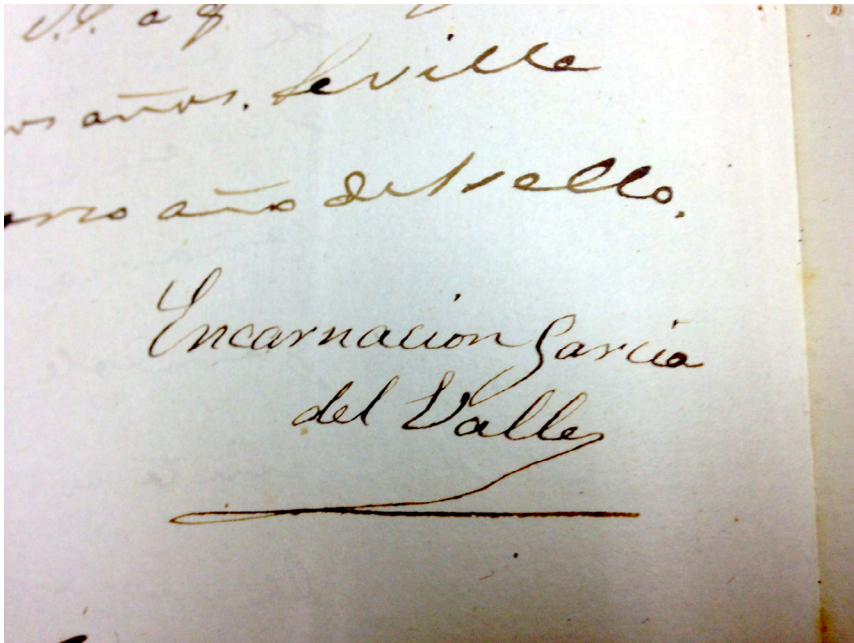 años. Sevilla
año del sello.
Encarnacion Garcia
del Valle